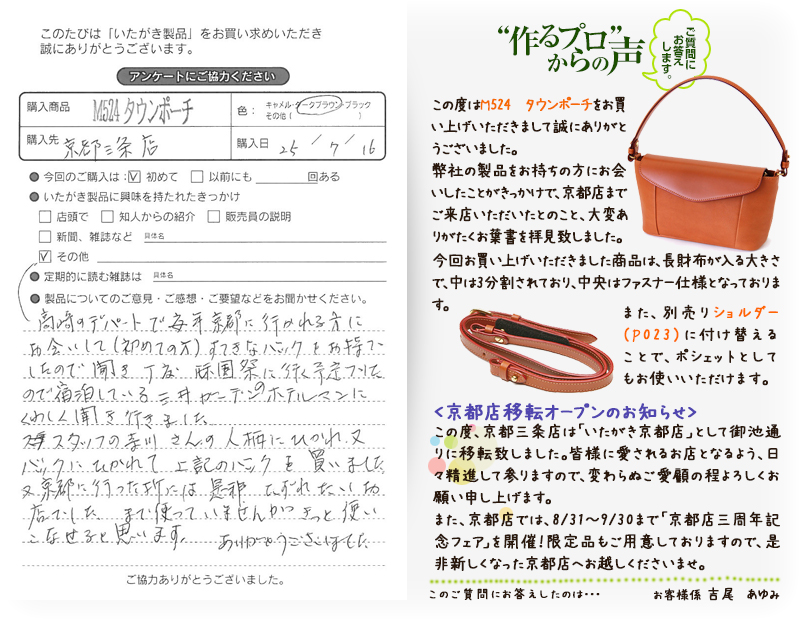 このたびは「いたがき製品」をお買い求めいただき
誠にありがとうございます。
アンケートにご協力ください
購入商品 M524 タウンポーチ
色： キャメル・ダークブラウン・ブラック
その他（ ）
購入先 京都三条店
購入日 25 / 7 / 16
● 今回のご購入は：☑ 初めて □ 以前にも 回ある
● いたがき製品に興味を持たれたきっかけ
□ 店頭で □ 知人からの紹介 □ 販売員の説明
□ 新聞、雑誌など 具体名
☑ その他
● 定期的に読む雑誌は 具体名
● 製品についてのご意見・ご感想・ご要望などをお聞かせください。
高崎のデパートで毎年京都に行かれる方に
お会いして(初めての方)すてきなバックをお持ちで
したので聞き 祇園祭に行く予定でした
ので宿泊している三井ガーデンのホテルマンに
くわしく聞き行きました
スタッフの 川さんの人柄にひかれ、又
バックにひかれて上記のバックを買いました
又京都に行った折には是非たずねたいお
店でした まだ使っていませんがきっと使い
こなせると思います。 ありがとうございました
ご協力ありがとうございました。
“作るプロ”
からの声
ご質問に
お答え
します。
この度はM524 タウンポーチをお買
い上げいただきまして誠にありがと
うございました。
弊社の製品をお持ちの方にお会
いしたことがきっかけで、京都店まで
ご来店いただいたとのこと、大変あ
りがたくお葉書を拝見致しました。
今回お買い上げいただきました商品は、長財布が入る大きさ
で、中は3分割されており、中央はファスナー仕様となっておりま
す。
また、別売りショルダー
(P023)に付け替える
ことで、ポシェットとして
もお使いいただけます。
<京都店移転オープンのお知らせ>
この度、京都三条店は「いたがき京都店」として御池通
りに移転致しました。皆様に愛されるお店となるよう、日
々精進して参りますので、変わらぬご愛顧の程よろしくお
願い申し上げます。
また、京都店では、8/31～9/30まで「京都店三周年記
念フェア」を開催！限定品もご用意しておりますので、是
非新しくなった京都店へお越しくださいませ。
このご質問にお答えしたのは・・・ お客様係 吉尾 あゆみ